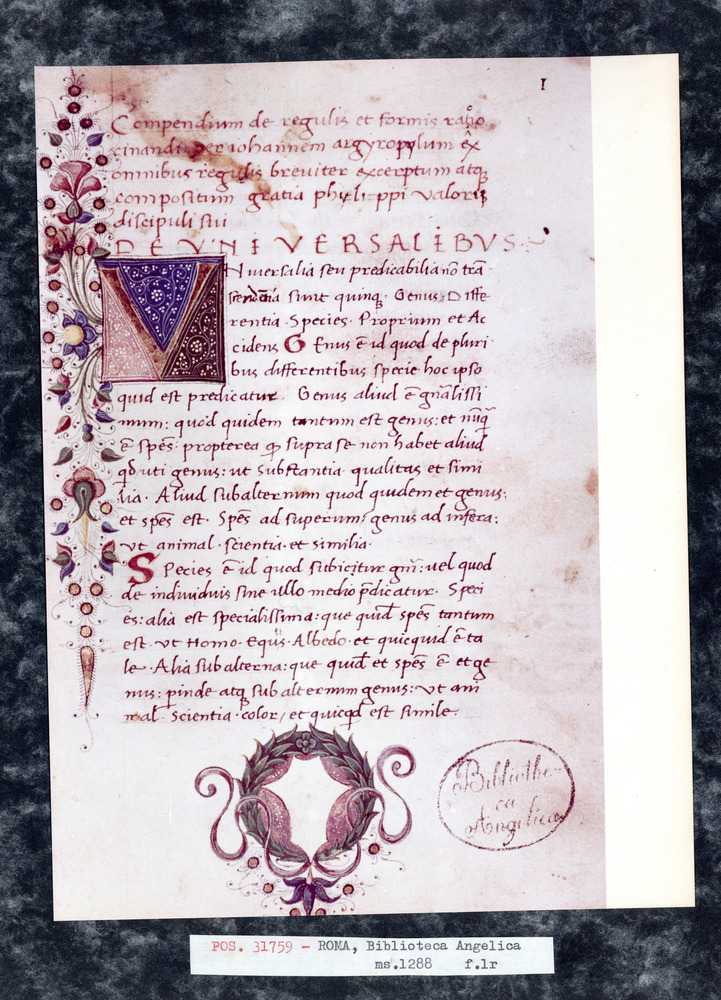 1
Compendium de regulis et formis ratio
cinandi per iohannem argyropylum ex
omnibus regulis breviter excerptum atq
compositum gratia phyli ppi valoris
discipuli sui
DE VNIVERSALIBVS
Niversalia seu predicabilia nō trā
scendētia sunt quinq. Genus. Diffe
rentia. Species. Proprium et Ac
cidens. GEnus ē id quod de pluri
bus differentibus specie hoc ipso
quid est predicatur. Genus aliud ē gnālissi
mum: quod quidem tantum est genus: et nūq̄
ē spēs. propterea q supra se non habet aliud
qd uti genus: ut substantia qualitas et simi
lia. Aliud subalternum quod quidem et genus:
et spēs est. Spēs ad superum: genus ad infera:
vt animal. scientia. et similia.
SPecies ē id quod subicitur gn̄i: vel quod
de individuis sine ullo medio p̄dicatur. Speci
es: alia est specialissima: que quid spēs tantum
est. vt Homo. Equs. Albedo. et quicquid ē ta
le. Alia subalterna: que quid et spēs ē et ge
nus: pinde atq subalternum genus: vt ani
mal. Scientia. color, et quicqd est simile.
Bibliothe-
ca
Angelica
POS. 31759 - ROMA, Biblioteca Angelica
ms.1288 f.1r